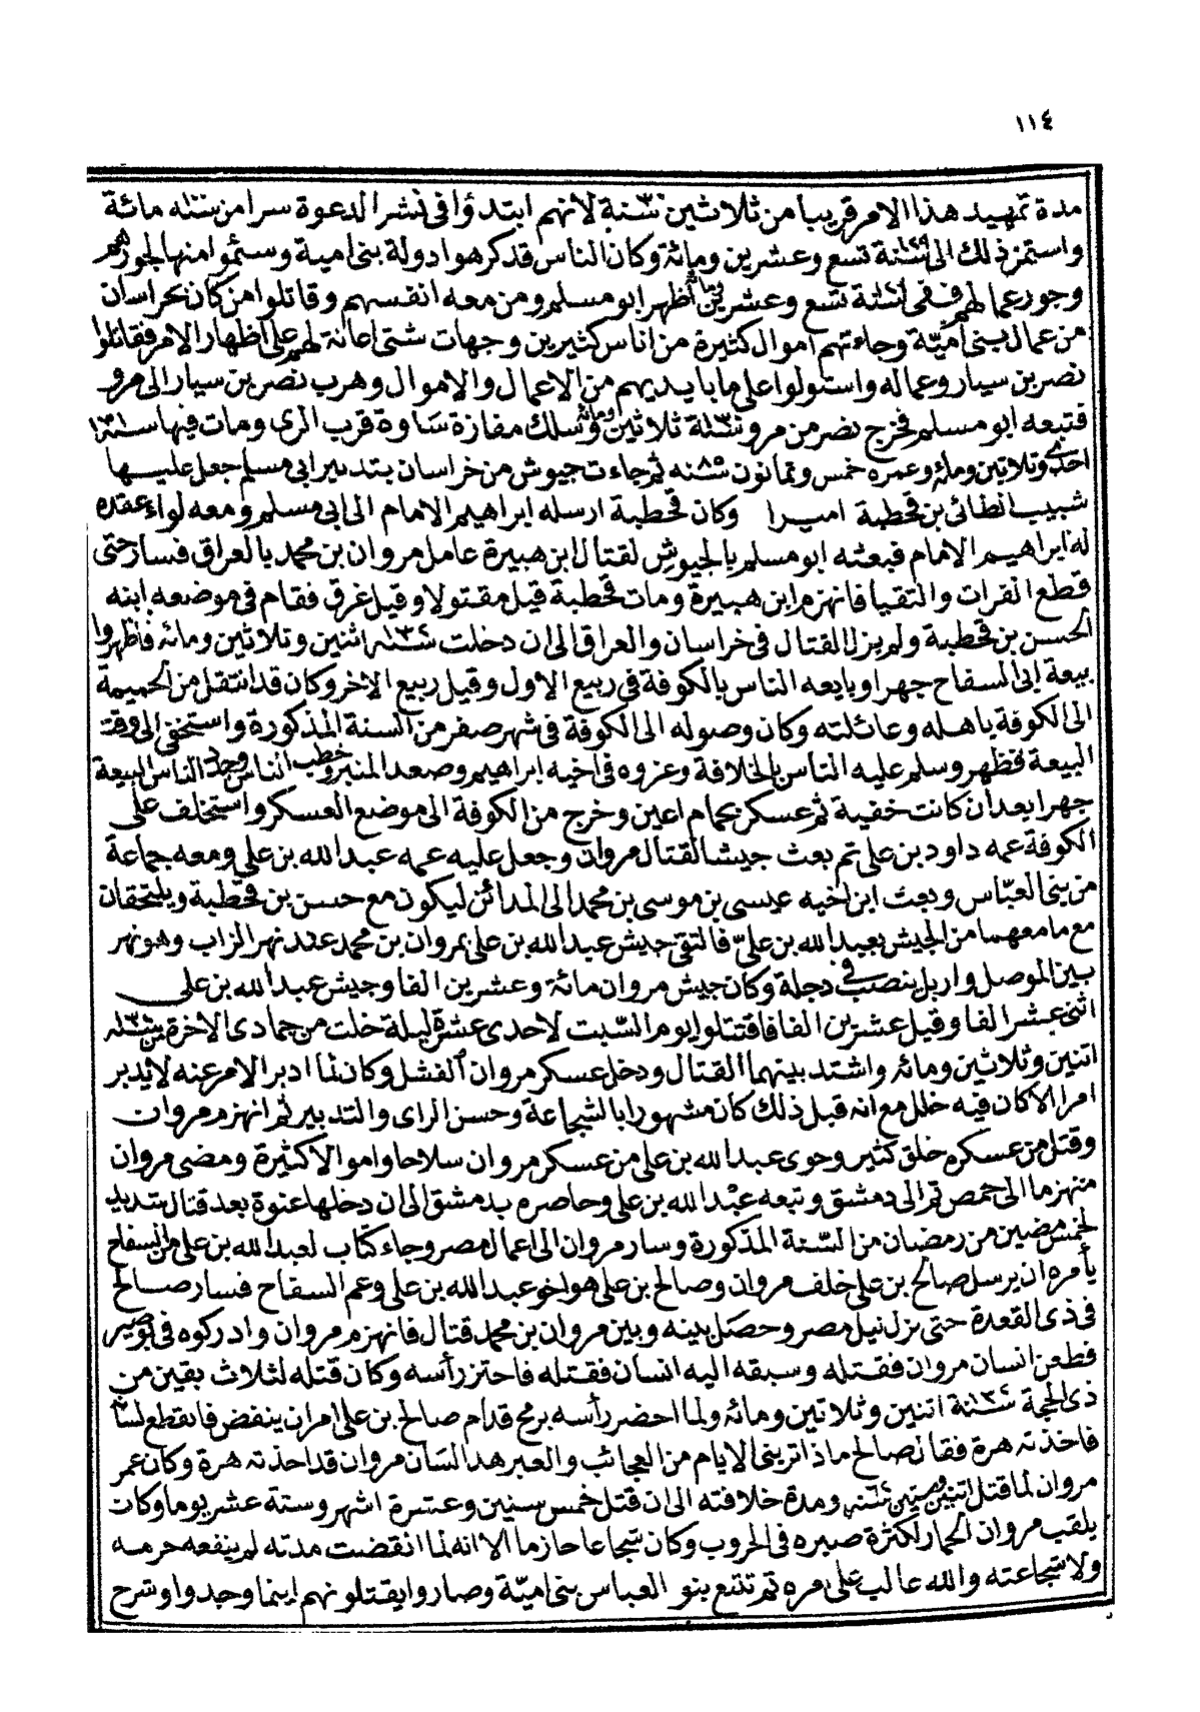 ١١٤
مدة تمهيد هذا الامر قريبا من ثلاثين ٣٠ سنة لانهم ابتدؤا فى نشر الدعوة سرا من سنة ١٠٠ مائة
واستمر ذلك الى سنة ١٢٩ تسع وعشرين ومائة وكان الناس قد كرهوا دولة بنى امية وسئموا منها لجورهم
وجور عمالهم ففى سنة ١٢٩ تسع وعشرين ومائة اظهر ابو مسلم ومن معه انفسهم وقاتلوا من كان بخراسان
من عمال بنى اميّة وجاءتهم اموال كثيرة من اناس كثيرين وجهات شتى اعانة لهم على اظهار الامر فقاتلوا
نصر بن سيار وعماله واستولوا على ما بايديهم من الاعمال والاموال وهرب نصر بن سيار الى مرو
فتبعه ابو مسلم فخرج نصر من مرو سنة ١٣٠ ثلاثين ومائة وسلك مفازة ساوة قرب الرى ومات فيها سنة ١٣١
احدى وثلاثين ومائة وعمره خمس وثمانون ٨٥ سنه ثم جاءت جيوش من خراسان بتدبير ابى مسلم جعل عليها
شبيب الطائى بن قحطبة اميرا وكان قحطبة ارسله ابراهيم الامام الى ابى مسلم ومعه لواء عقده
له ابراهيم الامام فبعثه ابو مسلم بالجيوش لقتال ابن هبيرة عامل مروان بن محمد بالعراق فسار حتى
قطع الفرات والتقيا فانهزم ابن هبيرة ومات قحطبة قيل مقتولا وقيل غرق فقام فى موضعه ابنه
الحسن بن قحطبة ولم يزل القتال فى خراسان والعراق الى ان دخلت سنة ١٣٢ اثنين وثلاثين ومائة فاظهروا
بيعة ابى السفاح جهرا وبايعه الناس بالكوفة فى ربيع الاول وقيل ربيع الآخر وكان قد انتقل من الحميمة
الى الكوفة باهله وعائلته وكان وصوله الى الكوفة فى شهر صفر من السنة المذكورة واستخفى الى وقت
البيعة فظهر وسلم عليه الناس بالخلافة وعزوه فى اخيه ابراهيم وصعد المنبر وخطب الناس وجدد الناس البيعة
جهرا بعد ان كانت خفية ثم عسكر بحمام اعين وخرج من الكوفة الى موضع العسكر واستخلف على
الكوفة عمه داود بن على ثم بعث جيشا لقتال مروان وجعل عليه عمه عبد الله بن على ومعه جماعة
من بنى العبّاس وبعث ابن اخيه عيسى بن موسى بن محمد الى المدائن ليكون مع حسن بن قحطبة ويلتحقان
مع ما معهما من الجيش بعبد الله بن علىّ فالتقى جيش عبد الله بن على بمروان بن محمد عند نهر الزاب وهو نهر
بين الموصل واربل ينصب فى دجلة وكان جيش مروان مائة وعشرين الفا وجيش عبد الله بن على
اثنى عشر الفا وقيل عشرين الفا فاقتتلوا يوم السّبت لاحدى عشرة ليلة خلت من جمادى الاخرة من سنة ١٣٢
اثنين وثلاثين ومائه واشتد بينهما القتال ودخل عسكر مروان الفشل وكان لما ادبر الامر عنه لا يدبر
امرا الا كان فيه خلل مع انه قبل ذلك كان مشهورا بالشجاعة وحسن الراى والتدبير ثم انهزم مروان
وقتل من عسكره خلق كثير وحوى عبد الله بن على من عسكر مروان سلاحا واموالا كثيرة ومضى مروان
منهزما الى حمص ثم الى دمشق وتبعه عبد الله بن على وحاصره بدمشق الى ان دخلها عنوة بعد قتال شديد
لخمس مضين من رمضان من السّنة المذكورة وسار مروان الى اعمال مصر وجاء كتاب لعبد الله بن على من السفاح
يأمره ان يرسل صالح بن على خلف مروان وصالح بن على هو اخو عبد الله بن على وعم السفاح فسار صالح
فى ذى القعدة حتى نزل نيل مصر وحصل بينه وبين مروان بن محمد قتال فانهزم مروان وادركوه فى بوصير
فطعن انسان مروان فقتله وسبقه اليه انسان فقتله فاحتز رأسه وكان قتله لثلاث بقين من
ذى الحجة سنة ١٣٢ اثنين وثلاثين ومائه ولما احضر رأسه برمح قدام صالح بن على امر ان ينفض فانقطع لسانه
فاخذته هرة فقال صالح ماذا تريني الايام من العجائب والعبر هذا لسان مروان قد اخذته هرة وكان عمر
مروان لما قتل اثنين وستين ٦٢ سنه ومدة خلافته الى ان قتل خمس سنين وعشرة اشهر وستة عشر يوما وكان
يلقب مروان الحمار لكثرة صبره فى الحروب وكان شجاعا حازما الا انه لما انقضت مدته لم ينفعه حزمه
ولا شجاعته والله غالب على امره ثم تتبع بنو العباس بنى اميّة وصاروا يقتلونهم اينما وجدوا وشرح